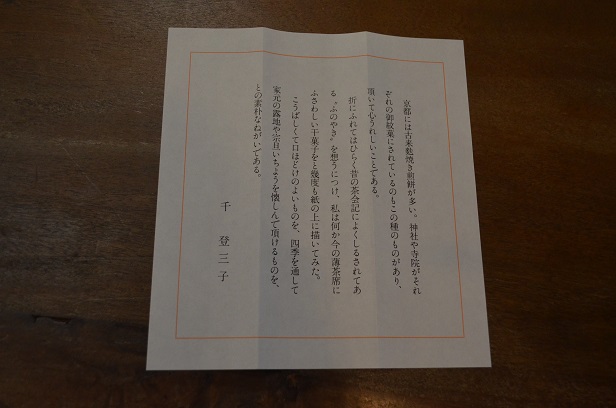 京都には古来麩焼き煎餅が多い。神社や寺院がそれ
ぞれの御紋菓にされているのもこの種のものがあり、
頂いて心うれしいことである。
折にふれてはひらく昔の茶会記によくしるされてあ
る〝ふのやき〟を想うにつけ、私は何か今の薄茶席に
ふさわしい干菓子をと幾度も紙の上に描いてみた。
こうばしくて口ほどけのよいものを、四季を通して
家元の露地や宗旦いちょうを懐しんで頂けるものを、
との素朴なねがいである。
千登三子